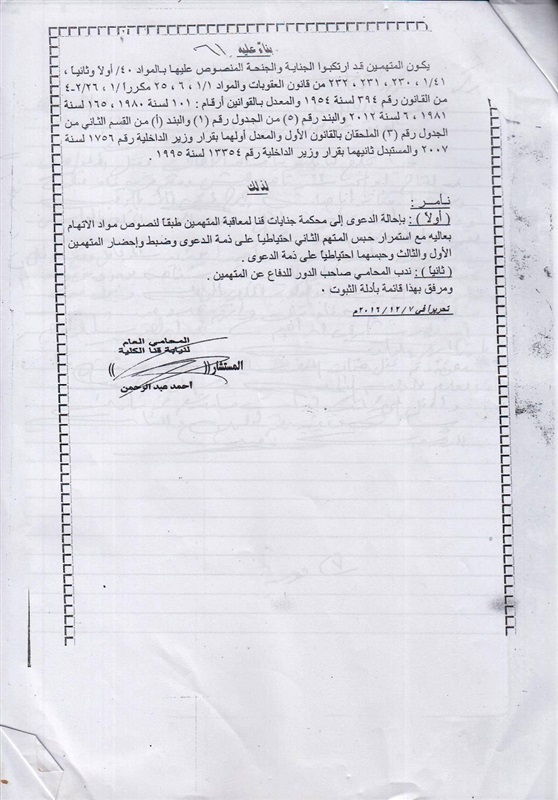 بناءً عليه
يكون المتهمين قد ارتكبوا الجناية والجنحة المنصوص عليها بالمواد ٤٠/ أولاً وثانياً ،
١/٤١ ، ٢٣٠ ، ٢٣١ ، ٢٣٢ من قانون العقوبات والمواد ١/١ ، ٦ ، ٢٥ مكرراً/ ١ ، ٢/٢٦-٤
من القانون رقم ٣٩٤ لسنة ١٩٥٤ والمعدل بالقوانين أرقام : ١٠١ لسنة ١٩٨٠ ، ١٦٥ لسنة
١٩٨١ ، ٦ لسنة ٢٠١٢ والبند رقم (٥) من الجدول رقم (١) والبند (أ) من القسم الثاني من
الجدول رقم (٣) الملحقان بالقانون الأول والمعدل أولهما بقرار وزير الداخلية رقم ١٧٥٦ لسنة
٢٠٠٧ والمستبدل ثانيهما بقرار وزير الداخلية رقم ١٣٣٥٤ لسنة ١٩٩٥ .
لذلك
نامر :
( أولاً ) : بإحالة الدعوى إلى محكمة جنايات قنا لمعاقبة المتهمين طبقاً لنصوص مواد الاتهام
بعاليه مع استمرار حبس المتهم الثاني احتياطياً على ذمة الدعوى وضبط وإحضار المتهمين
الأول والثالث وحبسهما احتياطياً على ذمة الدعوى .
( ثانياً ) : ندب المحامي صاحب الدور للدفاع عن المتهمين .
ومرفق بهذا قائمة بأدلة الثبوت .
تحريراً في ٢٠١٦/١٢/٧م
المحامي العام
لنيابة قنا الكلية
المستشار (( ))
أحمد عبد الرحمن